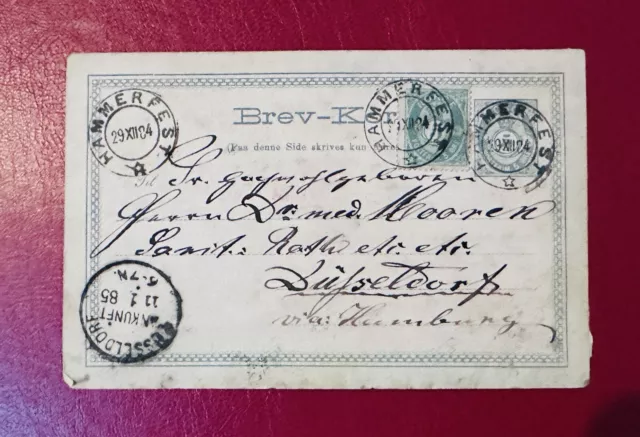 Brev-Ko
(Paa denne Side skrives kun
HAMMERFEST
29 XII 84
HAMMERFEST
29 XII 84
HAMMERFEST
29 XII 84
Til Sr. Hochwohlgeboren
Herrn Dr. med. Mooren
Sanit: Rath etc. etc.
Düsseldorf
via: Hamburg
DÜSSELDORF
ANKUNFT
11 1 85
6-7N.